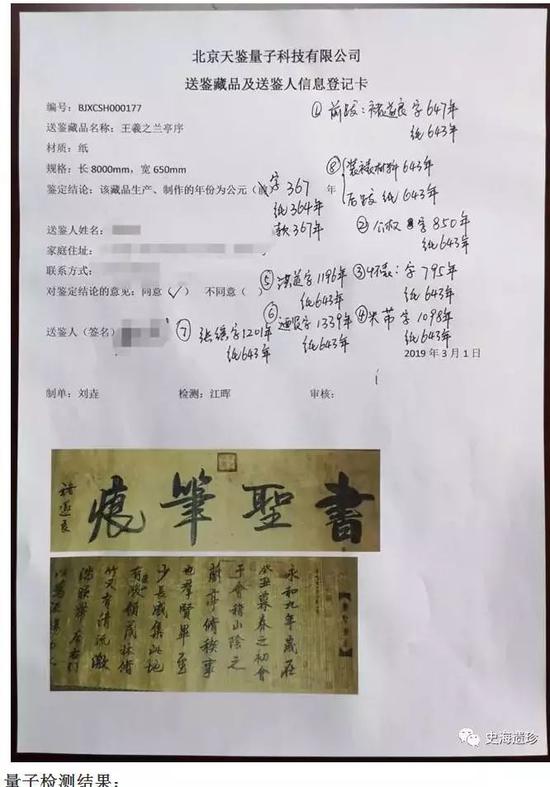 北京天鉴量子科技有限公司
送鉴藏品及送鉴人信息登记卡
编号：BJXCSH000177
① 前跋：褚遂良 字 647年
纸 643年
送鉴藏品名称：王羲之兰亭序
材质：纸
规格：长 8000mm，宽 650mm
⑧ 装裱材料 643年
后跋 纸 643年
鉴定结论：该藏品生产、制作的年份为公元（前）字 367 年
纸 364年
款 367年
② 公权 字 850年
纸 643年
送鉴人姓名：
家庭住址：
联系方式：
⑤ 洪适 字 1196年
纸 643年
③ 怀素：字 795年
纸 643年
对鉴定结论的意见：同意（✓） 不同意（ ）
送鉴人（签名）
⑦ 张 字 1201年
纸 643年
⑥ 字 1339年
纸 643年
④ 米芾 字 1098年
纸 643年
2019 年 3 月 1 日
制单：刘垚 检测：江晖 审核：
書聖筆痕
褚遂良
永和九年歲在
癸丑暮春之初會
于會稽山陰之
蘭亭脩稧事
也羣賢畢至
少長咸集此地
有峻領茂林脩
竹又有清流激
湍暎帶左右引
以為流
史海遗珍
量子检测结果：